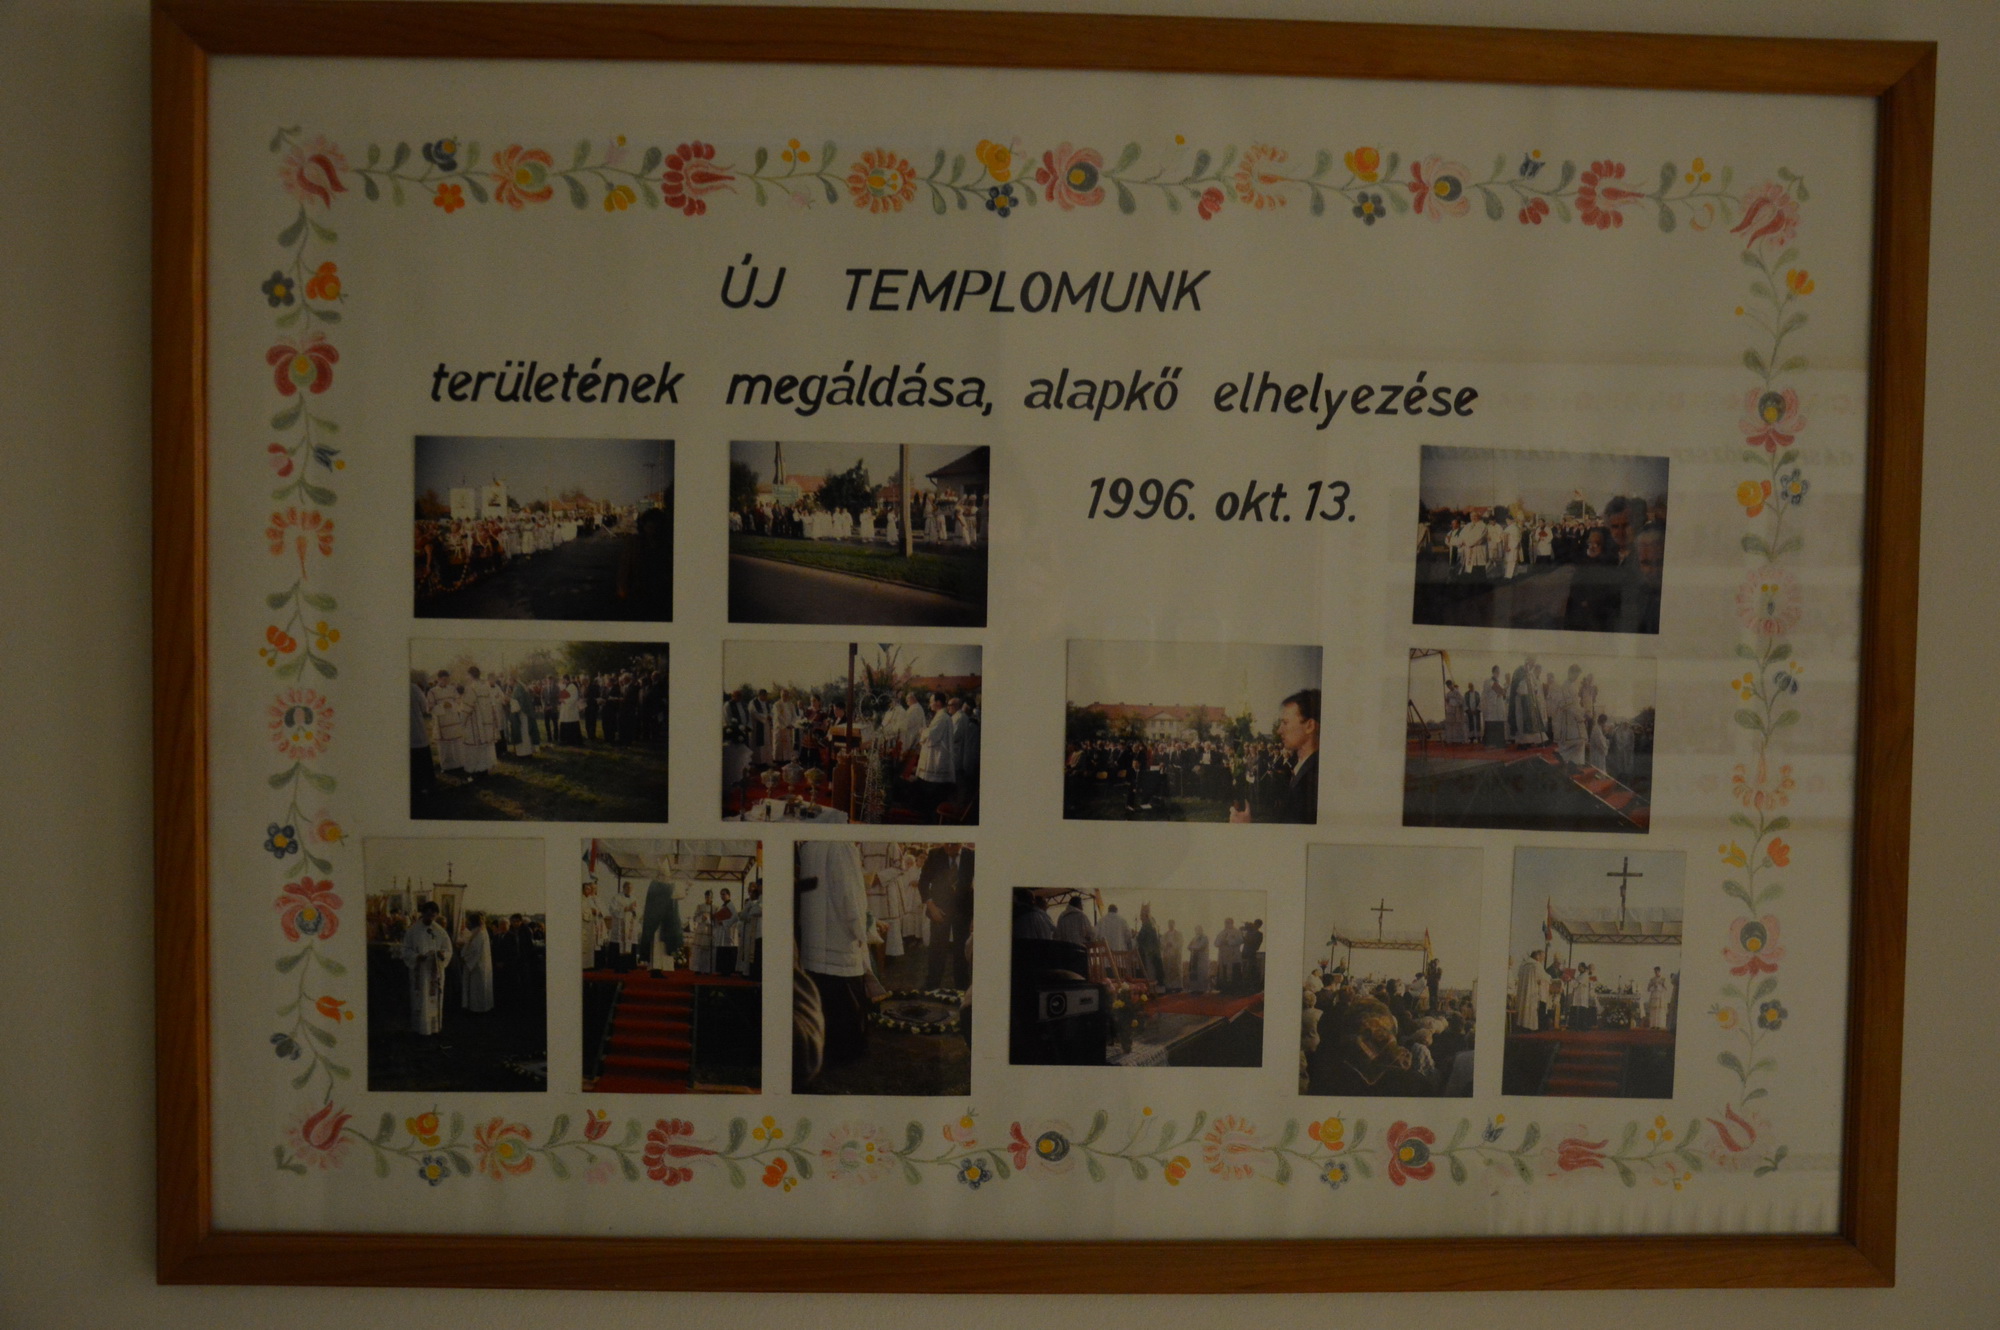 ÚJ TEMPLOMUNK
területének megáldása, alapkő elhelyezése
1996. okt. 13.